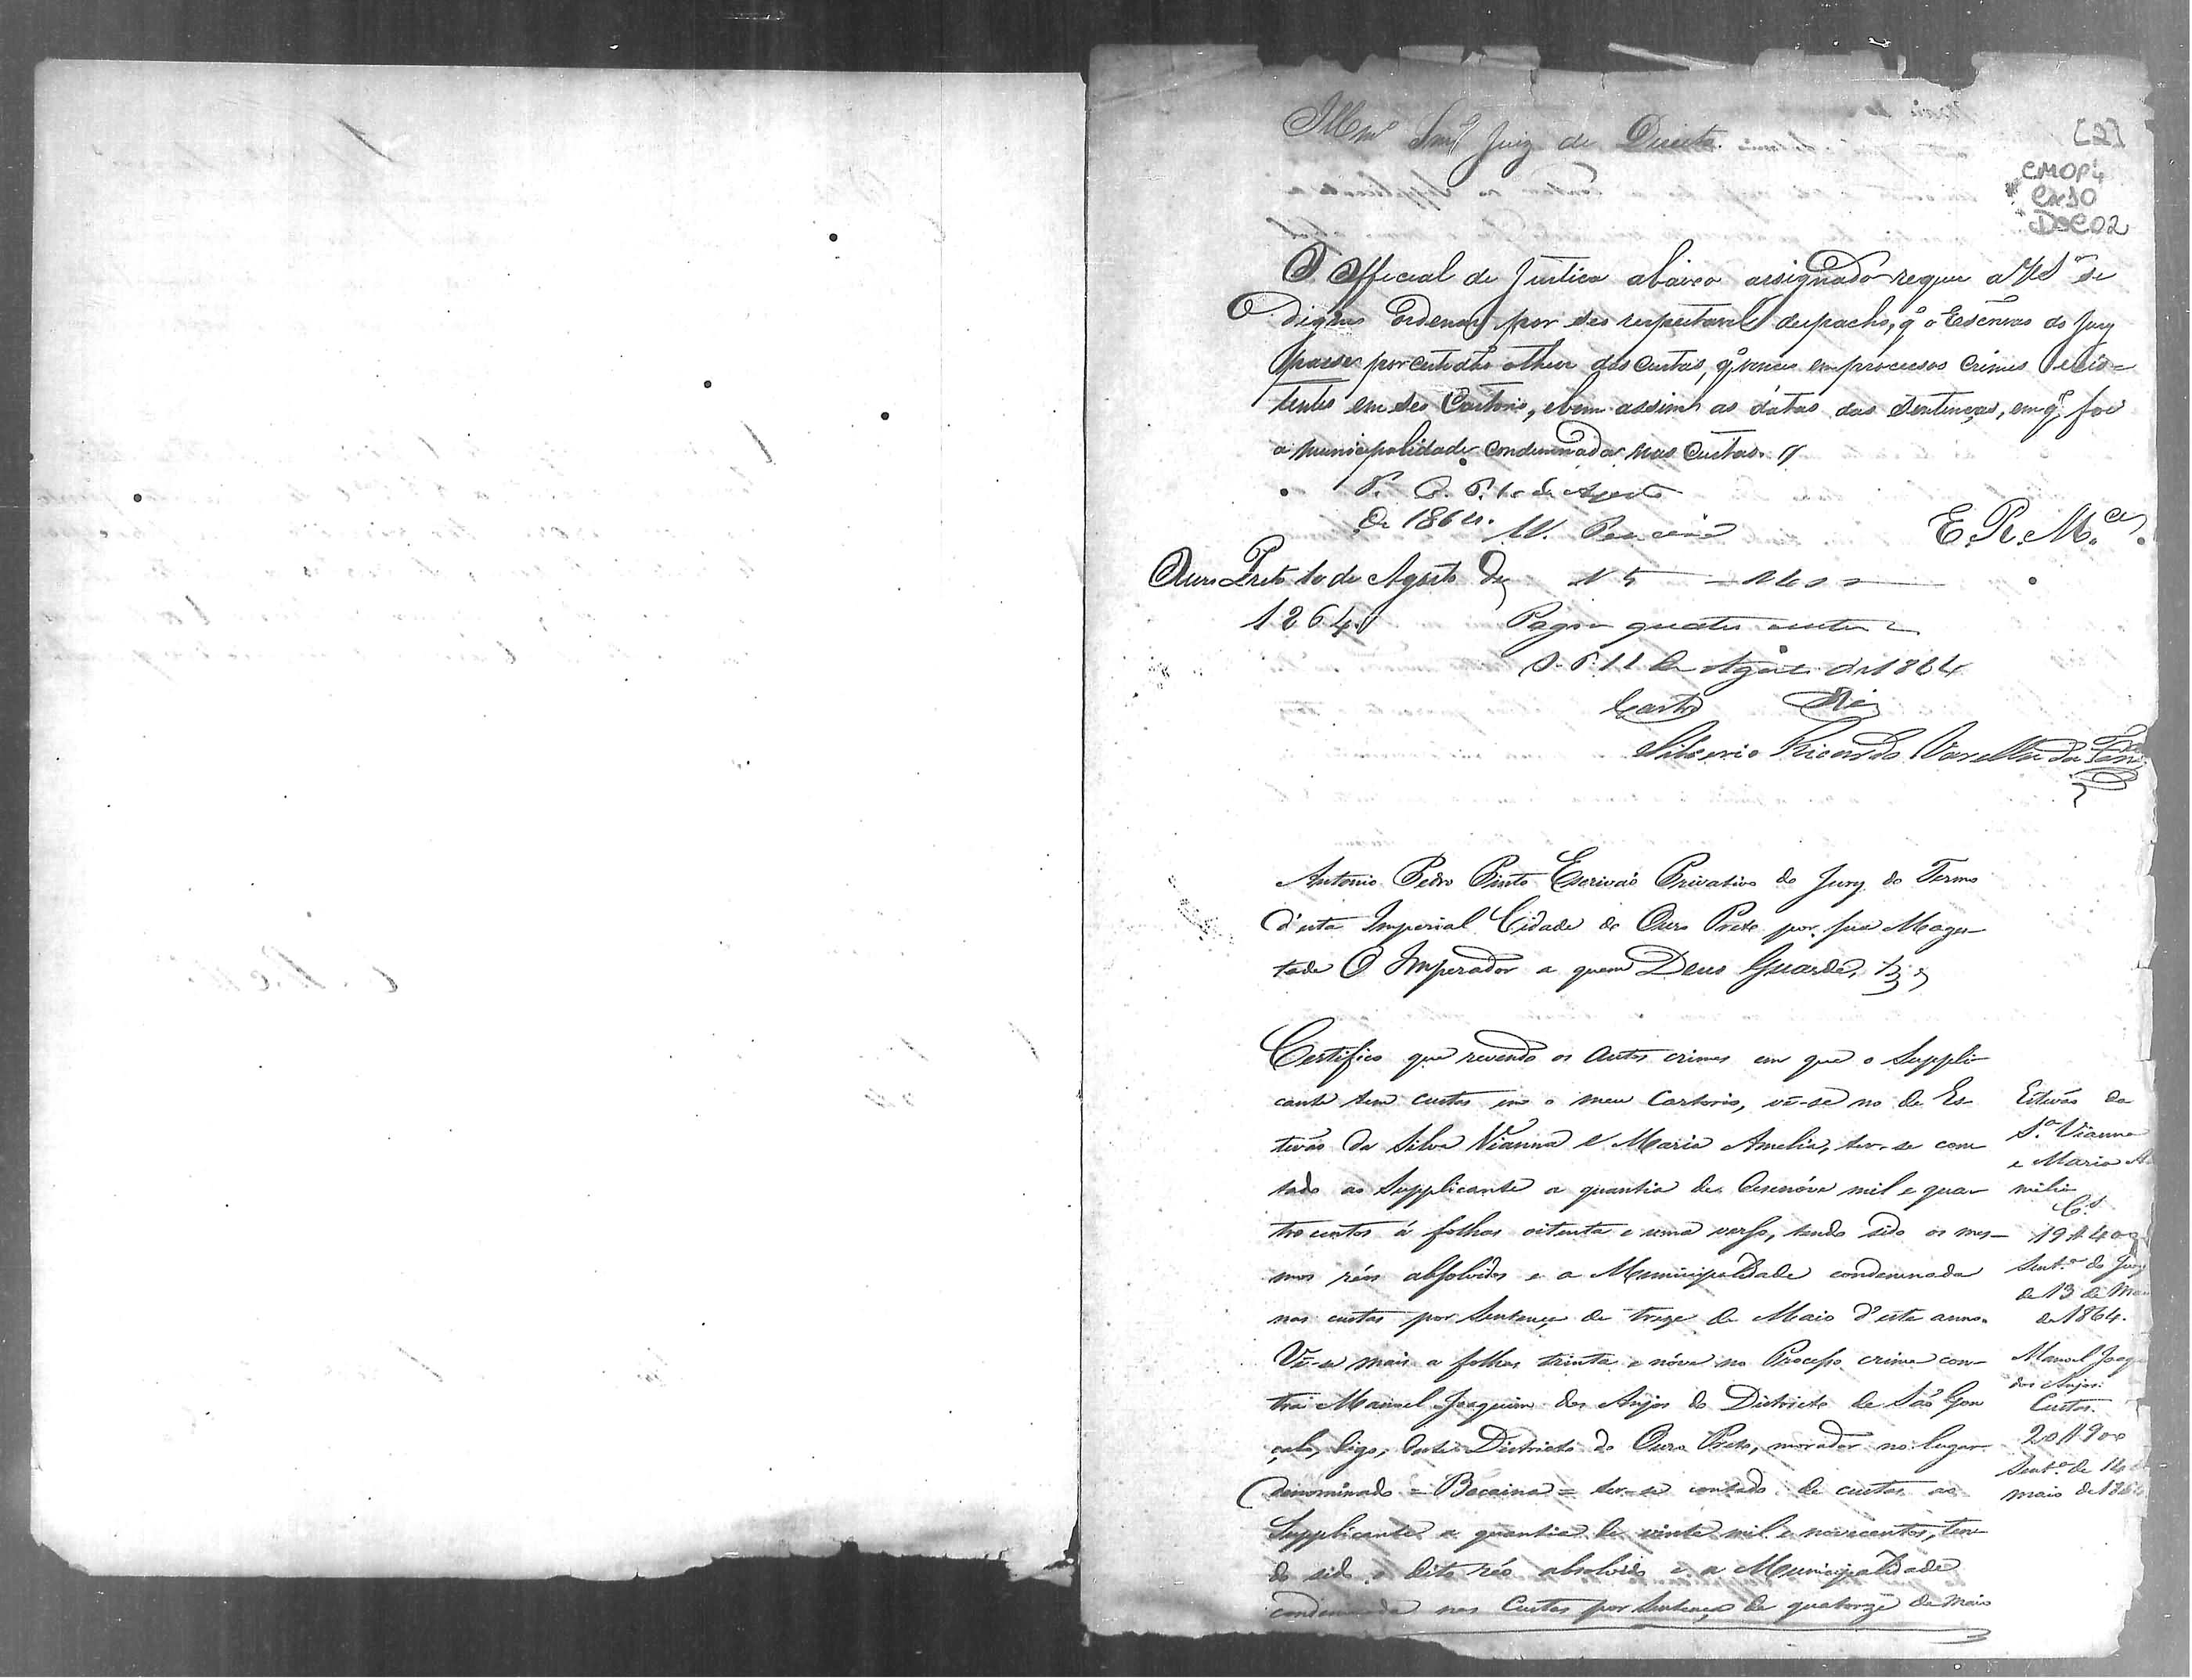 Illmº Snr Juiz de Direito.
[2]
CMOP4
Cx10
DOC02
O Official de Justiça abaixo assignado requer a VSª se
digne ordenar por seo respeitavel despacho, qº o Escrivão do Jury
passe por certidão o theor das custas, qº vence em processos crimes exis=
tentes em seo Cartorio, e bem assim as dátas das Sentenças, em qº foi
a municipalidade condemnada nas custas.
P. O. P. 10 de Agosto
de 1864.
E. R. Mce.
Ouro Preto 10 de Agosto de
1864.
N 5
Pagou
O. P. 11 de Agosto de 1864
Castro
Silverio Ricardo Varella da
Antonio Pedro Pinto Escrivão Privativo do Jury do Termo
d'esta Imperial Cidade de Ouro Preto por Sua Mages-
tade O Imperador a quem Deus Guarde,
Certifico que revendo os autos crimes em que o Suppli-
cante tem custas em o meu Cartorio, vê-se no de Es-
tevão da Silva Vianna e Maria Amelia, ter-se con-
tado ao Supplicante a quantia de desenóve mil e qua-
trocentos á folhas oitenta e uma verso, tendo sido os mes-
mos réos absolvidos e a Municipalidade condemnada
nas custas por Sentença de treze de Maio d'este anno.
Vê-se mais a folhas trinta e nóve no Processo crime con-
tra Manoel Joaquim dos Anjos do Districto de São Gon
çalo, digo, deste Districto do Ouro Preto, morador no lugar
denominado = Bocaina = ter-se contado de custas ao
Supplicante a quantia de vinte mil e novecentos, ten-
do sido o dito réo absolvido e a Municipalidade
condemnada nas Custas por Sentença de quatorze de Maio
Estevão da
Sª Vianna
e Maria A
melia
Cs
19$400
Sentª do Jury
de 13 de Maio
de 1864.
Manoel Joaq
dos Anjos.
Custas.
20$900
Sentª de 14 de
maio de 1864